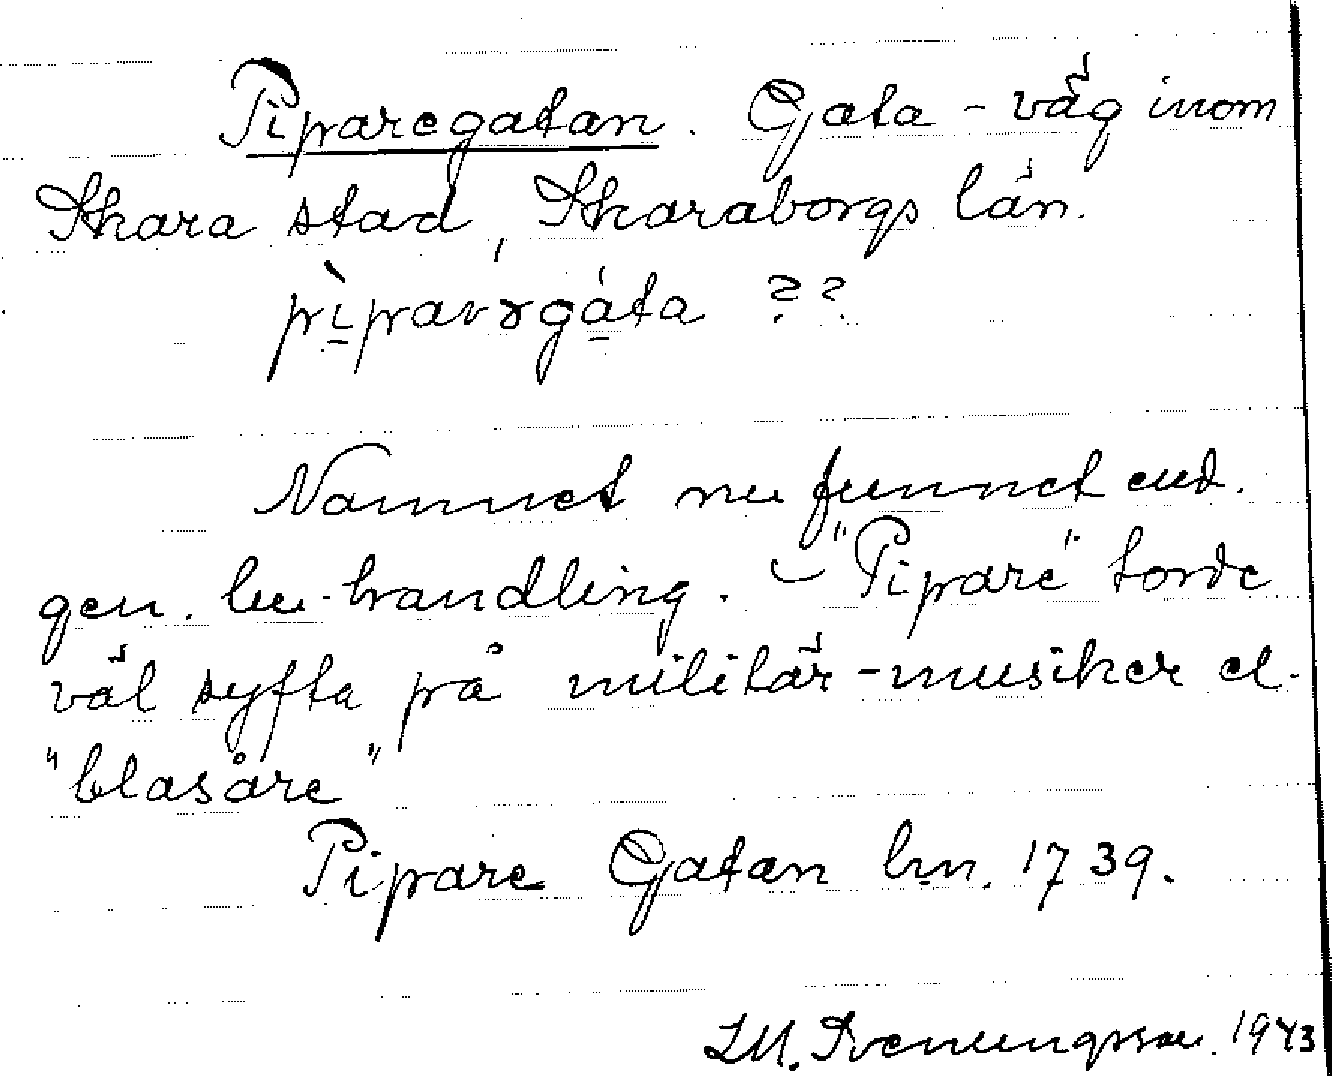 Piparegatan. Gata - väg inom
Skara stad, Skaraborgs län.
Namnet nu funnet end.
gen. lm-handling. - "Pipare" torde
väl syfta på militär-musiker el.
"blasåre"
Pipare Gatan lm. 1739.
Svenungsson. 1943